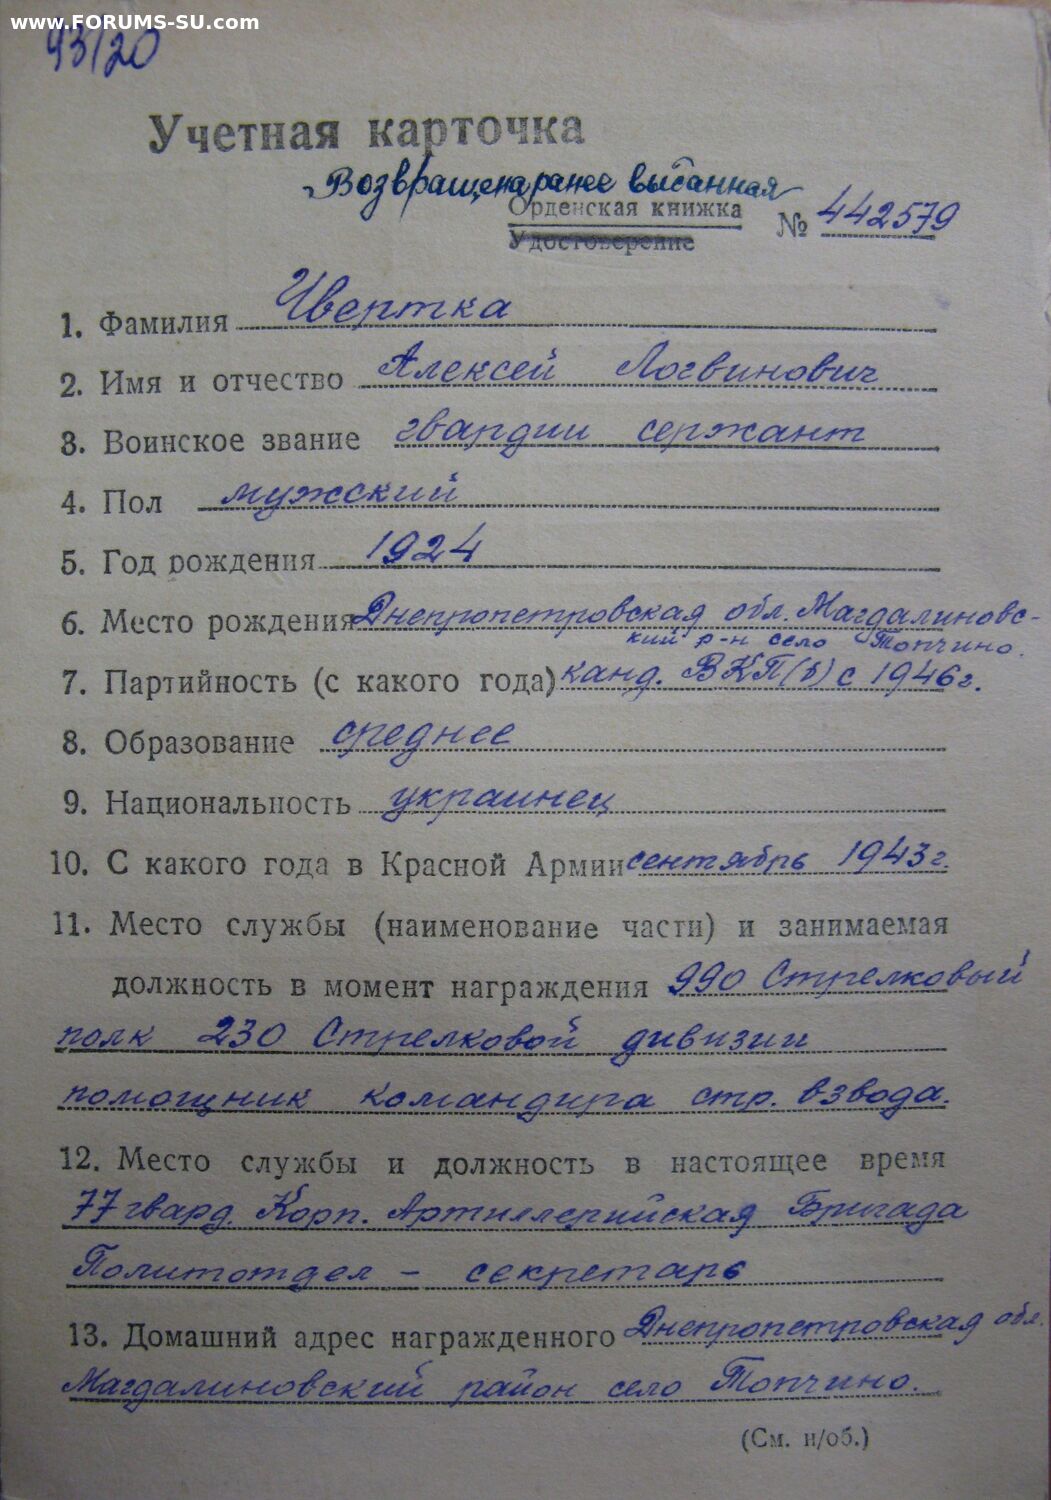 www.FORUMS-SU.com
93/20
Учетная карточка
Возвращена ранее выданная
Орденская книжка № 442579
Удостоверение
1. Фамилия Чвертка
2. Имя и отчество Алексей Логвинович
3. Воинское звание гвардии сержант
4. Пол мужский
5. Год рождения 1924
6. Место рождения Днепропетровская обл. Магдалиновс-
кий р-н село Топчино.
7. Партийность (с какого года) канд. ВКП(б) с 1946г.
8. Образование среднее
9. Национальность украинец
10. С какого года в Красной Армии сентябрь 1943г.
11. Место службы (наименование части) и занимаемая
должность в момент награждения 990 Стрелковый
полк 230 Стрелковой дивизии
помощник командира стр. взвода.
12. Место службы и должность в настоящее время
77 гвард. Корп. Артиллерийская Бригада
Политотдел – секретарь
13. Домашний адрес награжденного Днепропетровская обл.
Магдалиновский район село Топчино.
(См. н/об.)